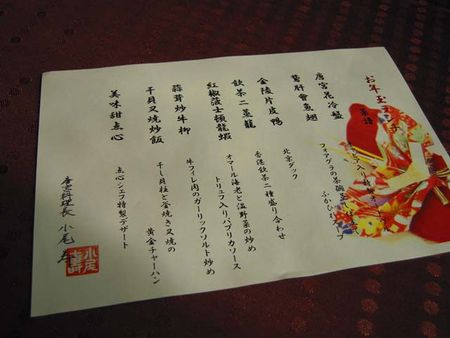 お年玉
菜譜
唐宮花冷盤
鵞肝會魚翅
フォアグラの茶碗蒸
ふかひれスープ
金陵片皮鴨
北京ダック
飲茶二蒸籠
香港飲茶二種盛り合わせ
紅椒菠士頓龍蝦
オマール海老と塩野菜の炒め
トリュフ入りパプリカソース
蒜茸炒牛柳
牛フィレ肉のガーリックソルト炒め
干貝叉燒炒飯
干し貝柱と釜焼き叉焼の
黄金チャーハン
美味甜点心
点心シェフ特製デザート
唐宮料理長 小尾